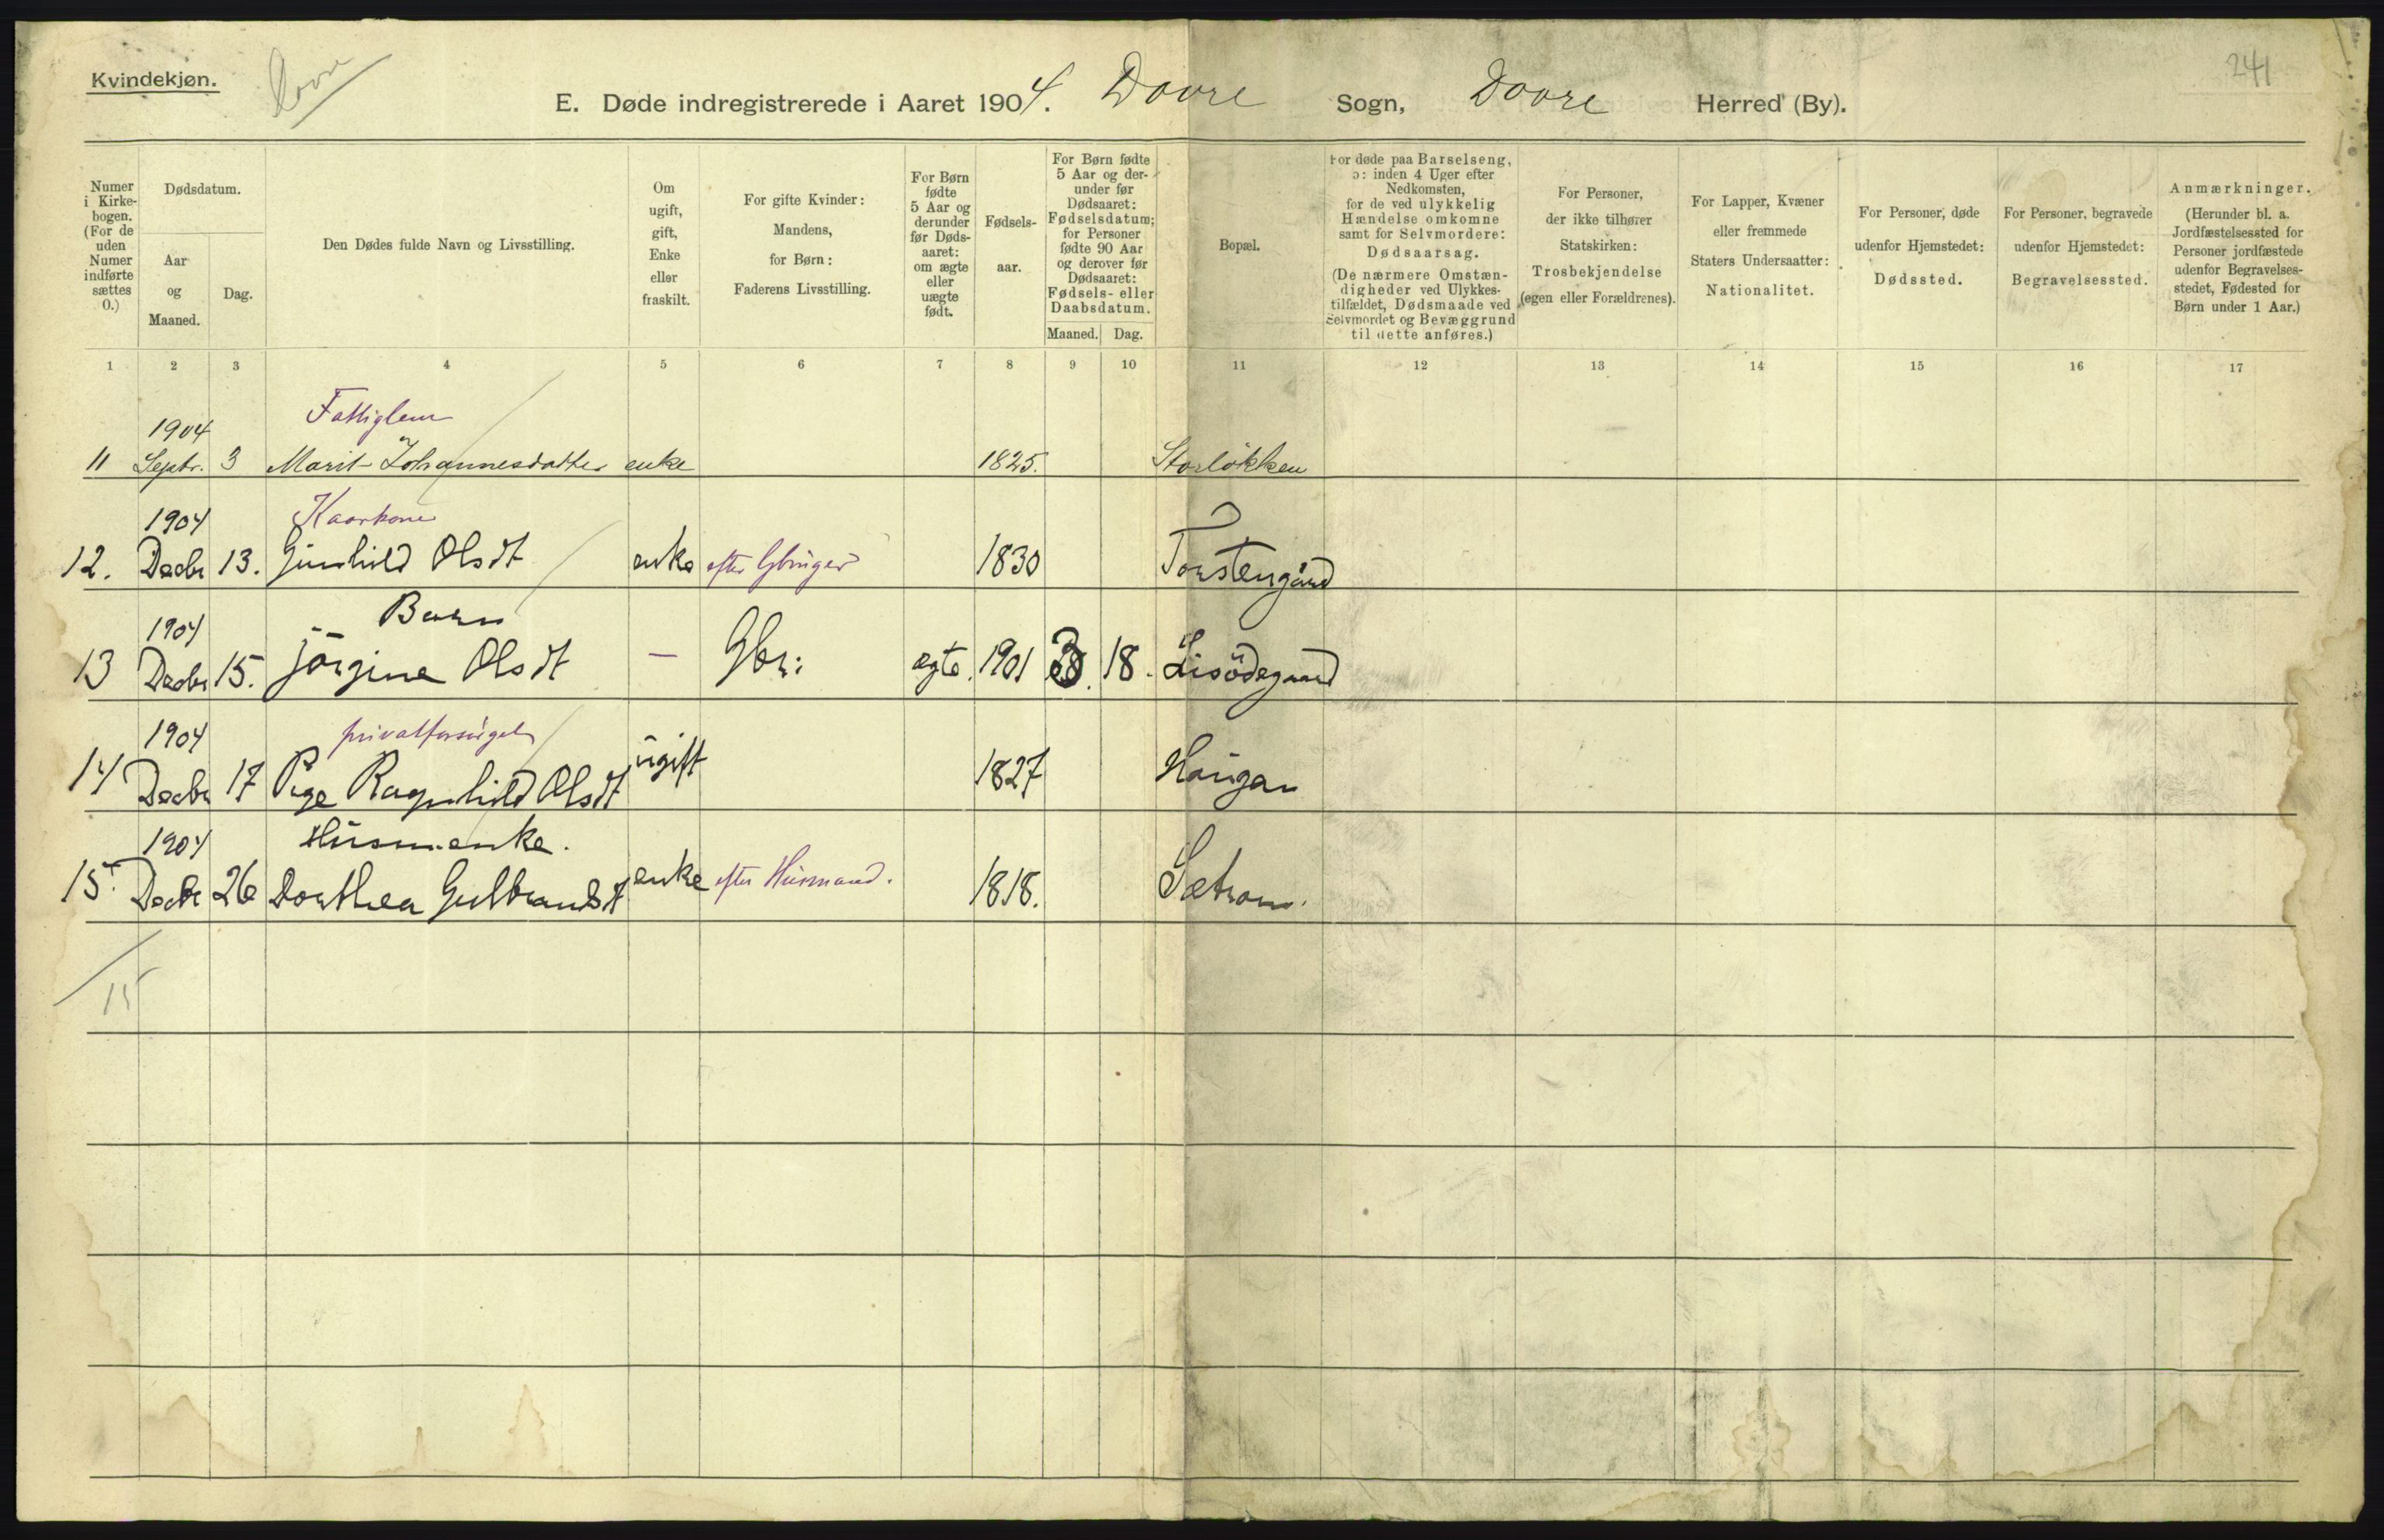 Kvindekjøn.
Dovre
241
E. Døde indregistrerede i Aaret 1904. Dovre Sogn, Dovre Herred (By).
Numer i Kirkebogen. (For de uden Numer indførte sættes 0.)
Dødsdatum.
Aar og Maaned.
Dag.
Den Dødes fulde Navn og Livsstilling.
Om ugift, gift, Enke eller fraskilt.
For gifte Kvinder: Mandens, for Børn: Faderens Livsstilling.
For Børn fødte 5 Aar og derunder før Dødsaaret: om ægte eller uægte født.
Fødselsaar.
For Børn fødte 5 Aar og derunder før Dødsaaret: Fødselsdatum; for Personer fødte 90 Aar og derover før Dødsaaret: Fødsels- eller Daabsdatum.
Maaned. Dag.
Bopæl.
For døde paa Barselseng, ɔ: inden 4 Uger efter Nedkomsten, for de ved ulykkelig Hændelse omkomne samt for Selvmordere: Dødsaarsag. (De nærmere Omstændigheder ved Ulykkestilfældet, Dødsmaade ved Selvmordet og Bevæggrund til dette anføres.)
For Personer, der ikke tilhører Statskirken: Trosbekjendelse (egen eller Forældrenes).
For Lapper, Kvæner eller fremmede Staters Undersaatter: Nationalitet.
For Personer, døde udenfor Hjemstedet: Dødssted.
For Personer, begravede udenfor Hjemstedet: Begravelsessted.
Anmærkninger. (Herunder bl. a. Jordfæstelsessted for Personer jordfæstede udenfor Begravelsesstedet, Fødested for Børn under 1 Aar.)
1 2 3 4 5 6 7 8 9 10 11 12 13 14 15 16 17
1904 Fattiglem
11 Septr. 3 Marit Johannesdatter enke 1825. Storløkken
1904 Kaarkone
12. Decbr 13. Gunhild Olsdt enke efter Gbruger 1830 Torstengård
1904 Barn
13 Decbr 15. Jörgine Olsdt — Gbr: ægte. 1901 18. Lisödegaard
1904 privatforsörget
14 Decbr 17 Pige Ragnhild Olsdt ugift 1827 Haugen
1904 Husm.enke.
15. Decbr 26 Dorthea Gulbrandsdt enke efter Husmand. 1818.
15